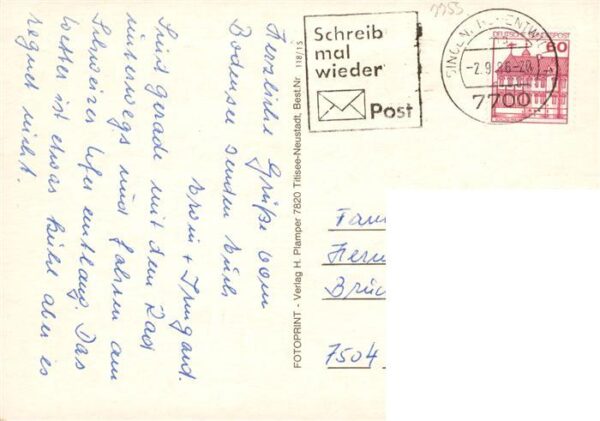 Herzliche Grüße vom
Bodensee senden Euch
Erwin + Irmgard.
Sind gerade mit dem Rad
unterwegs und fahren am
Schweizer Ufer entlang. Das
Wetter ist etwas kühl aber es
regnet nicht.
FOTOPRINT - Verlag H. Plamper 7820 Titisee-Neustadt, Best.Nr. 118/15
Schreib
mal
wieder
Post
7755
SINGEN, HOHENTW
-2.9.86-20
7700
DEUTSCHE BUNDESPOST
60
Fam
Herm
Brüc
7504